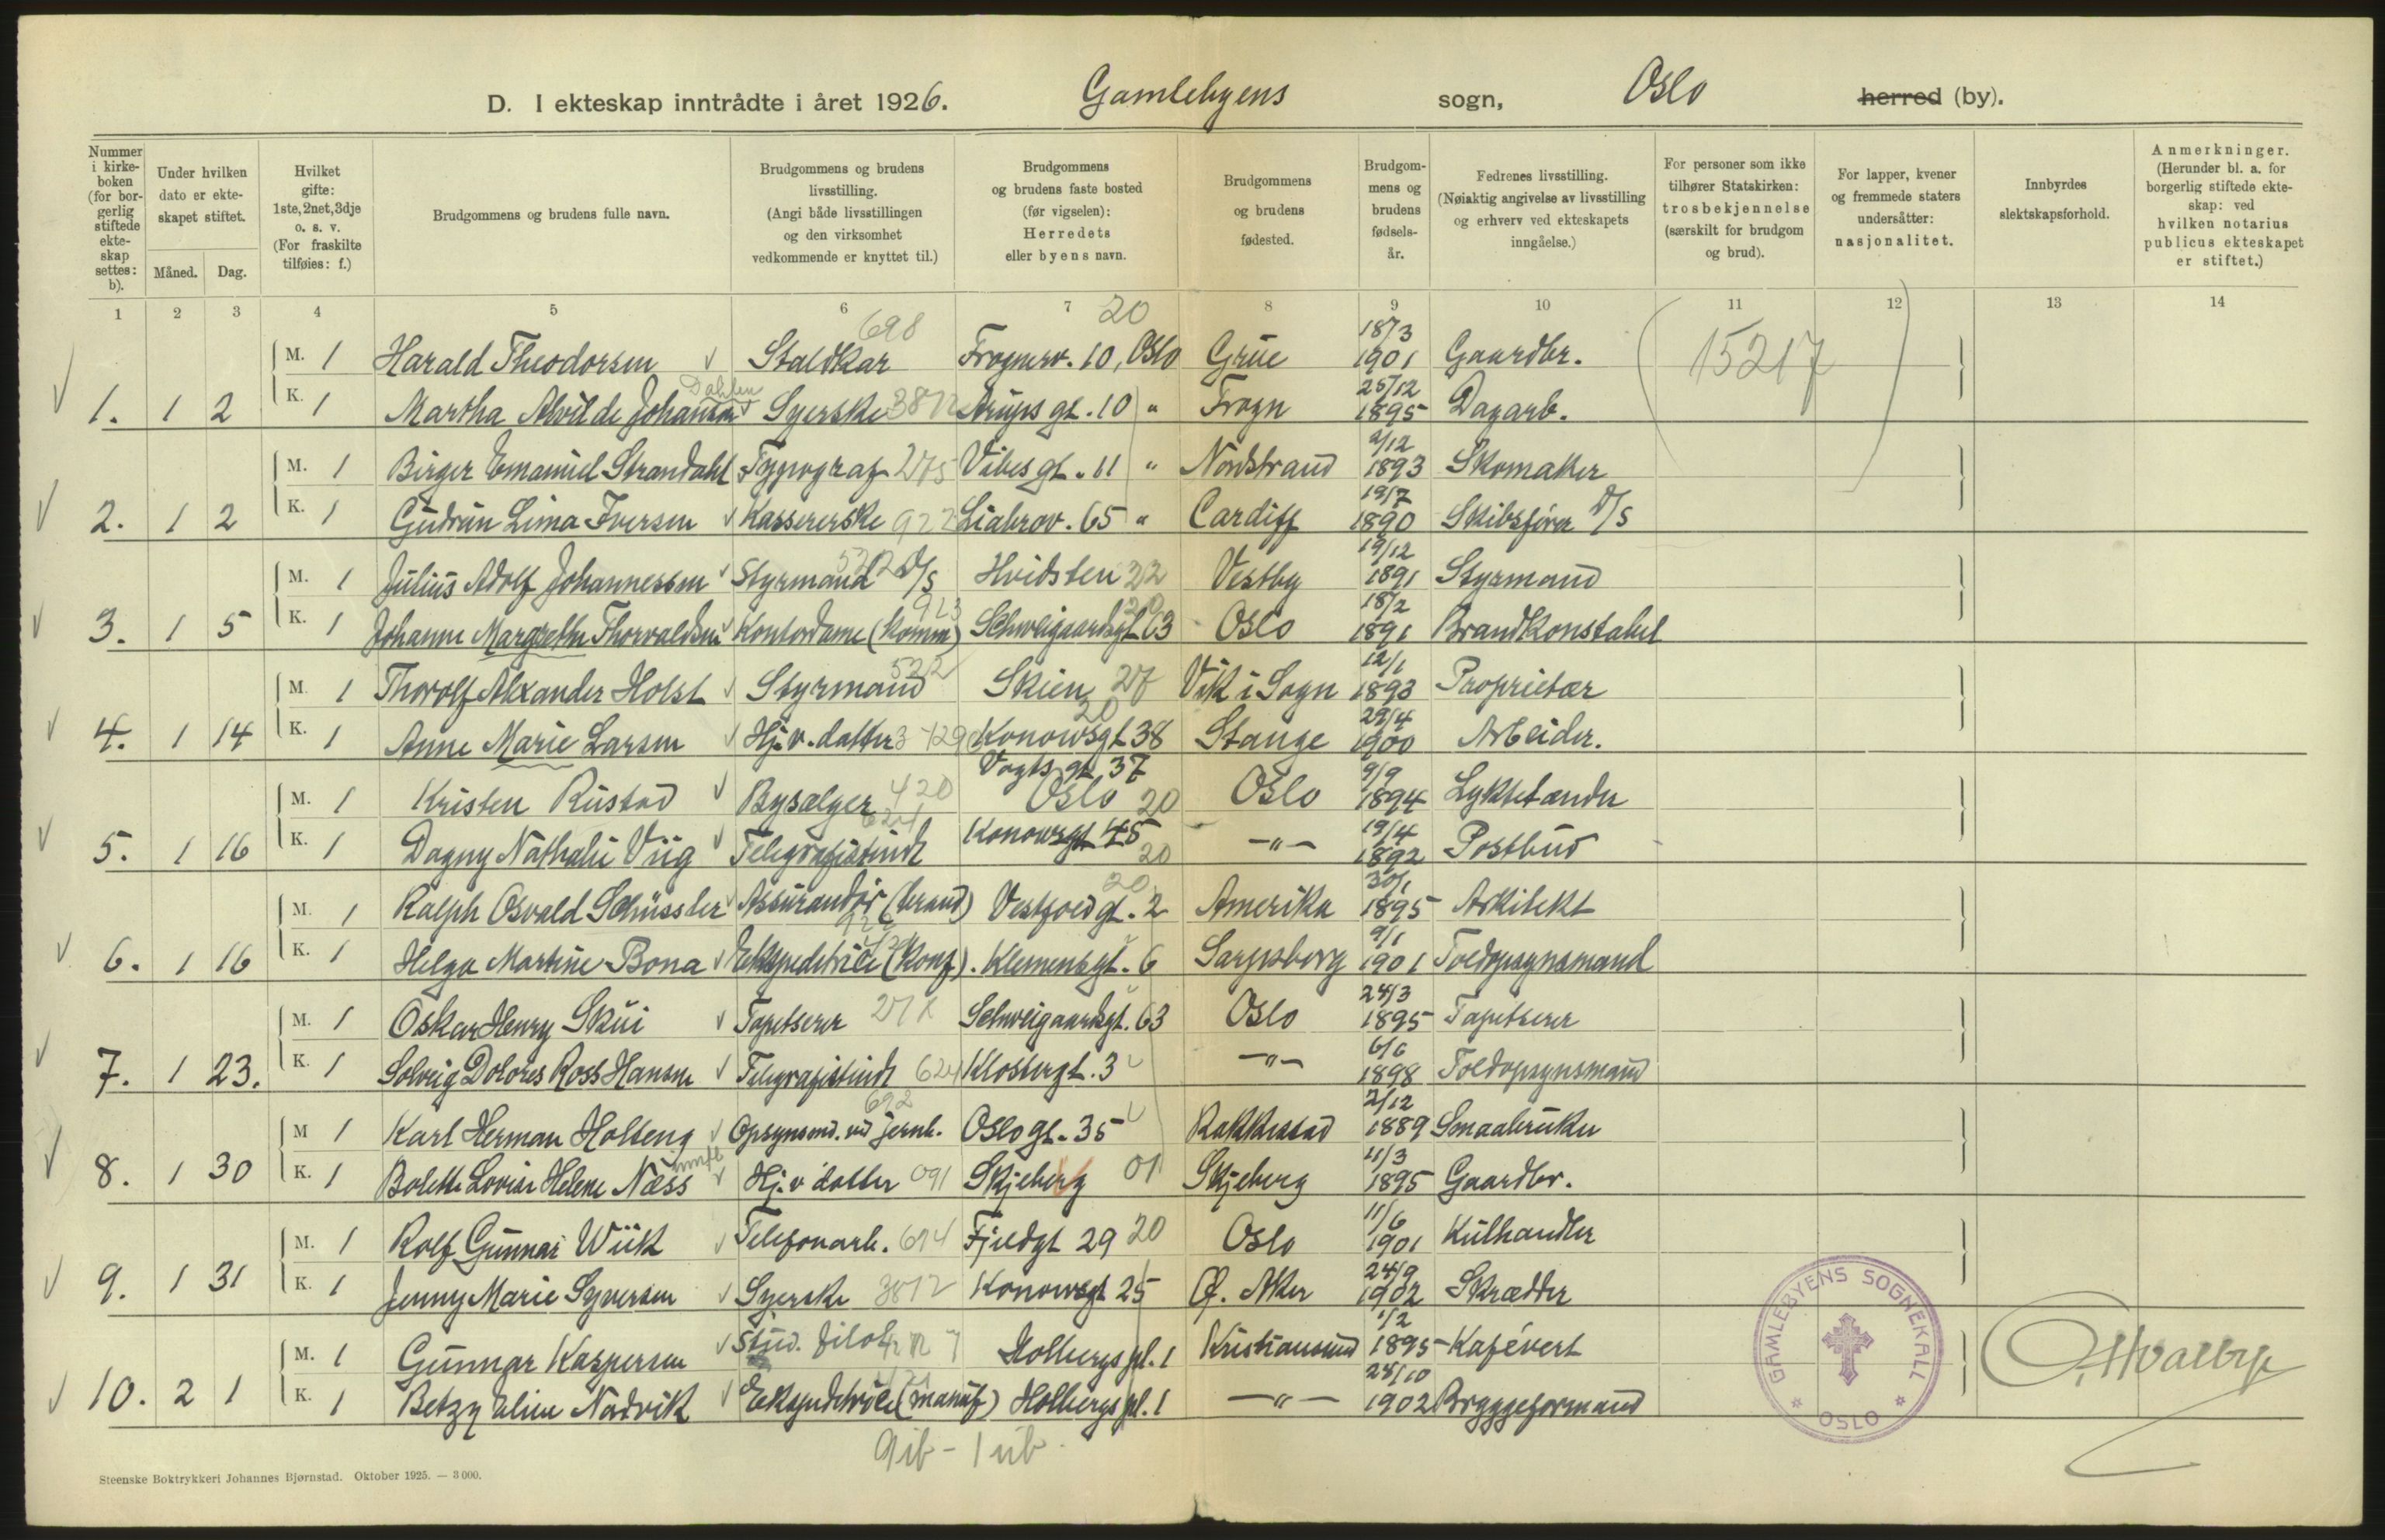 D. I ekteskap inntrådte i året 1926. Gamlebyens sogn, Oslo herred (by).
Nummer i kirke-boken (for bor-gerlig stiftede ekte-skap settes: b).
Under hvilken dato er ekte-skapet stiftet.
Måned. Dag.
Hvilket gifte: 1ste, 2net, 3dje o. s. v. (For fraskilte tilføies: f.)
Brudgommens og brudens fulle navn.
Brudgommens og brudens livsstilling. (Angi både livsstillingen og den virksomhet vedkommende er knyttet til.)
Brudgommens og brudens faste bosted (før vigselen): Herredets eller byens navn.
Brudgommens og brudens fødested.
Brudgom-mens og brudens fødsels-år.
Fedrenes livsstilling. (Nøiaktig angivelse av livsstilling og erhverv ved ekteskapets inngåelse.)
For personer som ikke tilhører Statskirken: trosbekjennelse (særskilt for brudgom og brud).
For lapper, kvener og fremmede staters undersåtter: nasjonalitet.
Innbyrdes slektskapsforhold.
Anmerkninger. (Herunder bl. a. for borgerlig stiftede ekte-skap: ved hvilken notarius publicus ekteskapet er stiftet.)
1 2 3 4 5 6 7 8 9 10 11 12 13 14
M. 1 Harald Theodorsen Staldkar 698 Frognerv. 10, Oslo 20 Grue 18/3 1901 Gaardbr. (15217)
1. 1 2 K. 1 Martha Alvilde Johansen Dahlen Syerske 3872 Arups gt. 10 " Frogn 25/12 1895 Dagarb.
M. 1 Birger Emanuel Strandahl Typograf 275 Vibes gt. 11 " Nordstrand 2/12 1893 Skomaker
2. 1 2 K. 1 Gudrun Lima Iversen Kassererske 922 Liabrov. 65 " Cardiff 19/7 1890 Skibsfører D/S
M. 1 Julius Adolf Johannessen Styrmand D/S 522 Hvidsten 22 Vestby 19/12 1891 Styrmand
3. 1 5 K. 1 Johanne Margrethe Thorvaldsen Kontordame (komm) 923 Schweigaardsgt. 63 20 Oslo 18/2 1891 Brandkonstabel
M. 1 Thorolf Alexander Holst Styrmand 522 Skien 27 Vik i Sogn 12/1 1893 Proprietær
4. 1 14 K. 1 Anne Marie Larsen Hj.v. datter Konowsgt. 38 20 Stange 29/4 1900 Arbeider.
M. 1 Kristen Rustad Bysælger 420 Vogts gt. 37 Oslo 20 Oslo 9/9 1894 Lyktetænder
5. 1 16 K. 1 Dagny Nathalie Viig Telegrafistinde 624 Konowsgt. 45 20 —"— 19/4 1892 Postbud
M. 1 Ralph Osvald Schüssler Assurandør (brand) Vestfold gt. 2 20 Amerika 30/1 1895 Arkitekt
6. 1 16 K. 1 Helga Martine Bona Ekspeditrice (konf). Klemensgt. 6 Sarpsborg 9/1 1901 Toldopsynsmand
M. 1 Oskar Henry Skui Tapetserer Schweigaardsgt. 63 Oslo 24/3 1895 Tapetserer
7. 1 23. K. 1 Solveig Dolores Ross Hansen Telegrafistinde 624 Klostergt. 3 —"— 6/6 1898 Toldopsynsmand
M 1 Karl Herman Holteng Opsynsmd. ved jernb. 692 Oslo gt. 35 Rakkestad 2/12 1889 Smaabruker
8. 1 30 K. 1 Bolette Lovise Helene Næss Hj.v. datter 091 Skjeberg 01 Skjeberg 11/3 1895 Gaardbr.
M. 1 Rolf Gunnar Wiik Telefonarb. 614 Fjeldgt 29 20 Oslo 11/6 1901 Kulhandler
9. 1 31 K. 1 Jenny Marie Syversen Syerske 3812 Konowsgt 25 Ø. Aker 24/9 1902 Skrædder
M. 1 Gunnar Kaspersen Stud. filol. Holbergs pl. 1 Kristiansund 1/2 1895 Kafévert
10. 2 1 K. 1 Betzy Eline Nordvik Ekspeditrice (manuf) Holbergs pl. 1 —"— 28/10 1902 Bryggeformand
9ib - 1ub.
GAMLEBYENS SOGNEKALL * OSLO *
Steenske Boktrykkeri Johannes Bjørnstad. Oktober 1925. — 3 000.